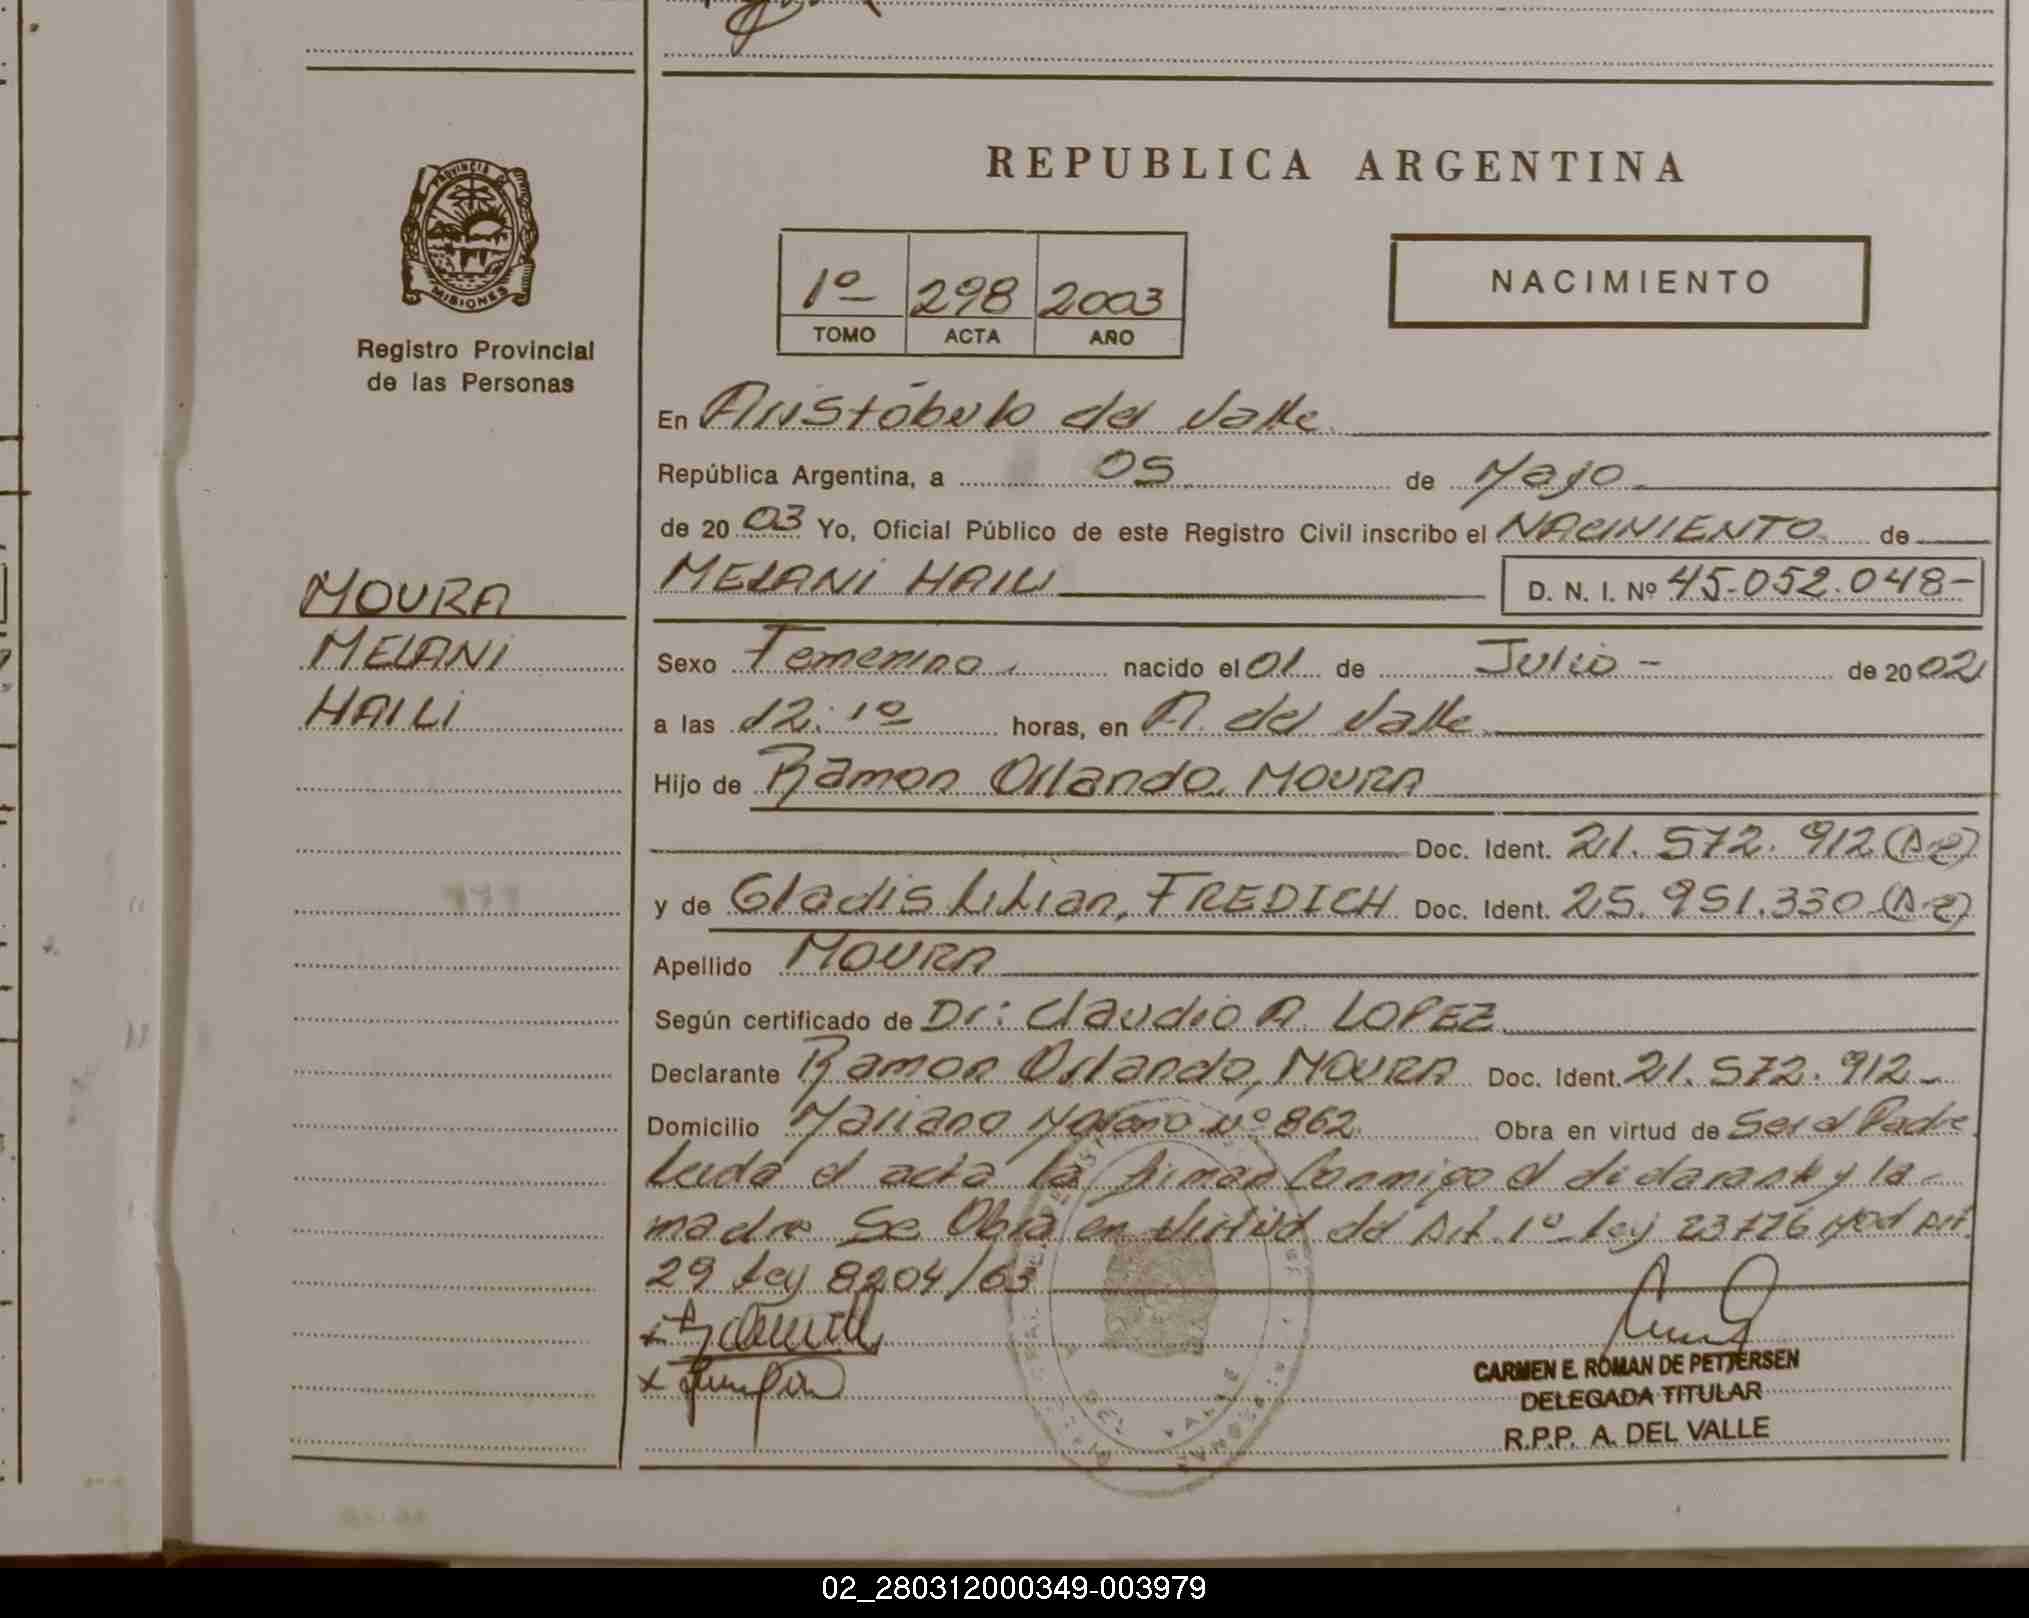 REPUBLICA ARGENTINA
PROVINCIA DE
MISIONES
Registro Provincial
de las Personas
1º 298 2003
TOMO ACTA AÑO
NACIMIENTO
En Aristóbulo del Valle
República Argentina, a 05 de Mayo
de 2003 Yo, Oficial Público de este Registro Civil inscribo el NACIMIENTO de
MELANI HAILI D. N. I. Nº 45.052.048-
MOURA
MELANI
HAILI
Sexo Femenino. nacido el 01 de Julio - de 2002
a las 12:10 horas, en A. del Valle
Hijo de Ramon Orlando, MOURA
Doc. Ident. 21.572.912
y de Gladis Lilian, FREDICH Doc. Ident. 25.951.330
Apellido MOURA
Según certificado de Dr: Claudio A. LOPEZ
Declarante Ramon Orlando, MOURA Doc. Ident. 21.572.912-
Domicilio Mariano Moreno Nº 862 Obra en virtud de Ser el Padre
Leida el acta la firman Conmigo el declarante y la
madre Se Obra en virtud del Art. 1º Ley 23776 Mod Art.
29 Ley 8204/63
CARMEN E. ROMAN DE PETTERSEN
DELEGADA TITULAR
R.P.P. A. DEL VALLE
DEL VALLE
02_280312000349-003979